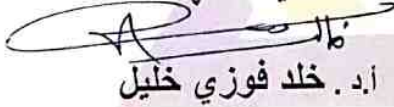 أ.د. خلد فوزي خليل